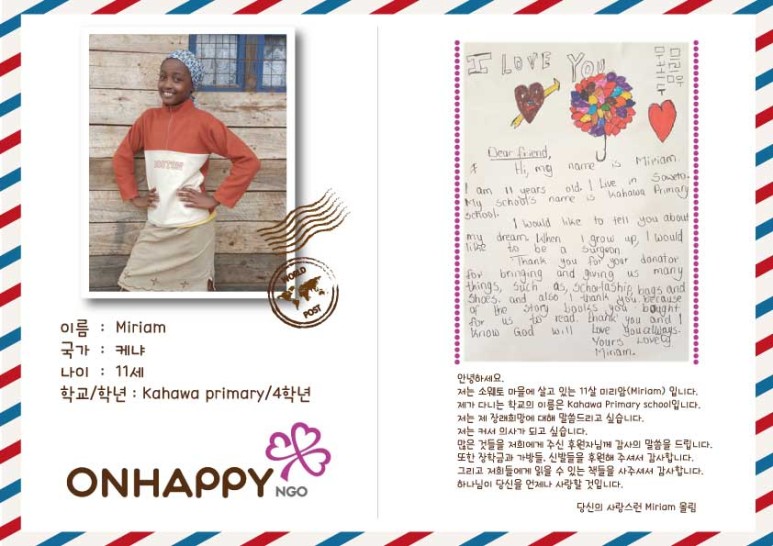 WORLD
POST
이름 : Miriam
국가 : 케냐
나이 : 11세
학교/학년 : Kahawa primary/4학년
ONHAPPY NGO
I LOVE YOU
Dear friend,
Hi, my name is Miriam.
I am 11 years old. I Live in Soweto.
My school's name is Kahawa Primary
school.
I would like to tell you about
my dream. When I grow up, I would
like to be a surgeon.
Thank you for your donator
for bringing and giving us many
things, such as, scholarship, bags and
shoes. and also I thank you because
of the story books you bought
for us to read. thank you and I
know God will Love you always.
Yours Lovely
Miriam.
안녕하세요.
저는 소웨토 마을에 살고 있는 11살 미리암(Miriam) 입니다.
제가 다니는 학교의 이름은 Kahawa Primary school입니다.
저는 제 장래희망에 대해 말씀드리고 싶습니다.
저는 커서 의사가 되고 싶습니다.
많은 것들을 저희에게 주신 후원자님께 감사의 말씀을 드립니다.
또한 장학금과 가방들, 신발들을 후원해 주셔서 감사합니다.
그리고 저희들에게 읽을 수 있는 책들을 사주셔서 감사합니다.
하나님이 당신을 언제나 사랑할 것입니다.
당신의 사랑스런 Miriam 올림